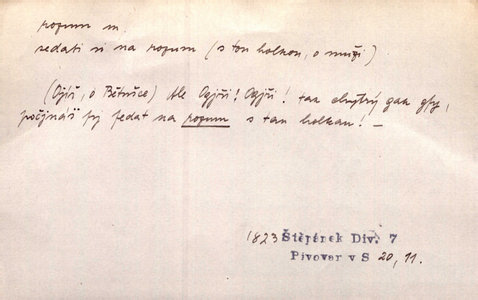 rozum m.
sedati si na rozum (s tou holkou, o muži)
(Ojíř, o Bětušce) Ale Ogjři! Ogjři! tak chytrý gak gſy,
počjnáš ſy ſedat na rozum s tau holkau! —
1823 Štěpánek Div. 7
Pivovar v S 20, 11.